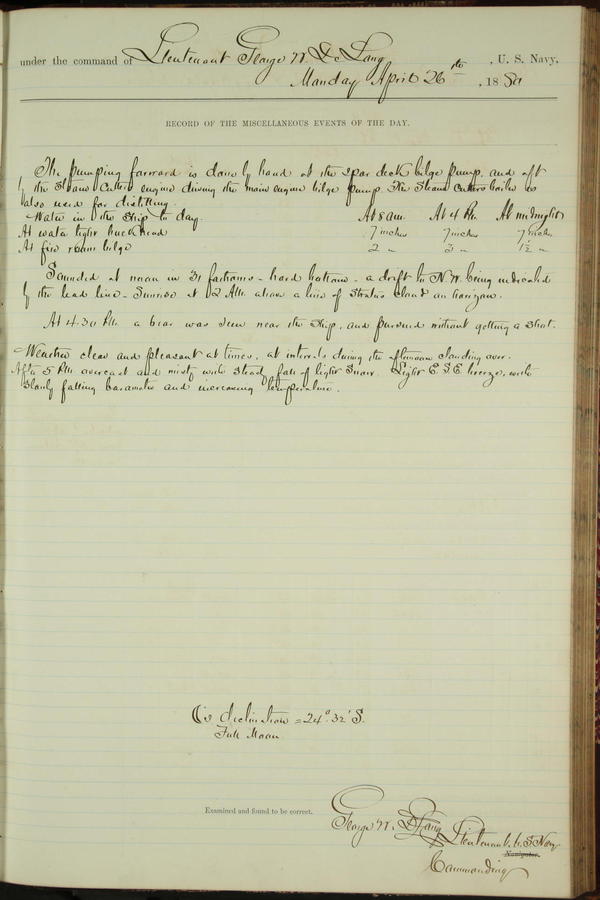 under the command of Lieutenant George W. De Long, U. S. Navy,
Monday April 26th, 1880
RECORD OF THE MISCELLANEOUS EVENTS OF THE DAY.
The pumping forward is done by hand at the spar deck bilge pump, and aft
by the Steam Cutters engine driving the main engine bilge pump. The Steam Cutters boiler is
also used for distilling.
Water in the Ship to day. At 8 am. At 4 PM. At midnight
At water tight bulkhead 7 inches 7 inches 7 inches
At fire room bilge 2 " 3 " 1½ "
Sounded at noon in 31 fathoms - hard bottom - a drift to N.W. being indicated
by the lead line - Sunrise at 2 AM. above a line of Stratus Cloud on horizon.
At 4.30 PM. a bear was seen near the Ship, and pursued without getting a shot.
Weather clear and pleasant at times, at intervals during the afternoon clouding over.
After 5 PM overcast and misty with steady fall of light Snow. Light E.S.E. breeze, with
slowly falling barometer and increasing temperature.
☾'s declination = 24° 32' S.
Full Moon
Examined and found to be correct.
George W. De Long Lieutenant U.S. Navy
Navigator.
Commanding